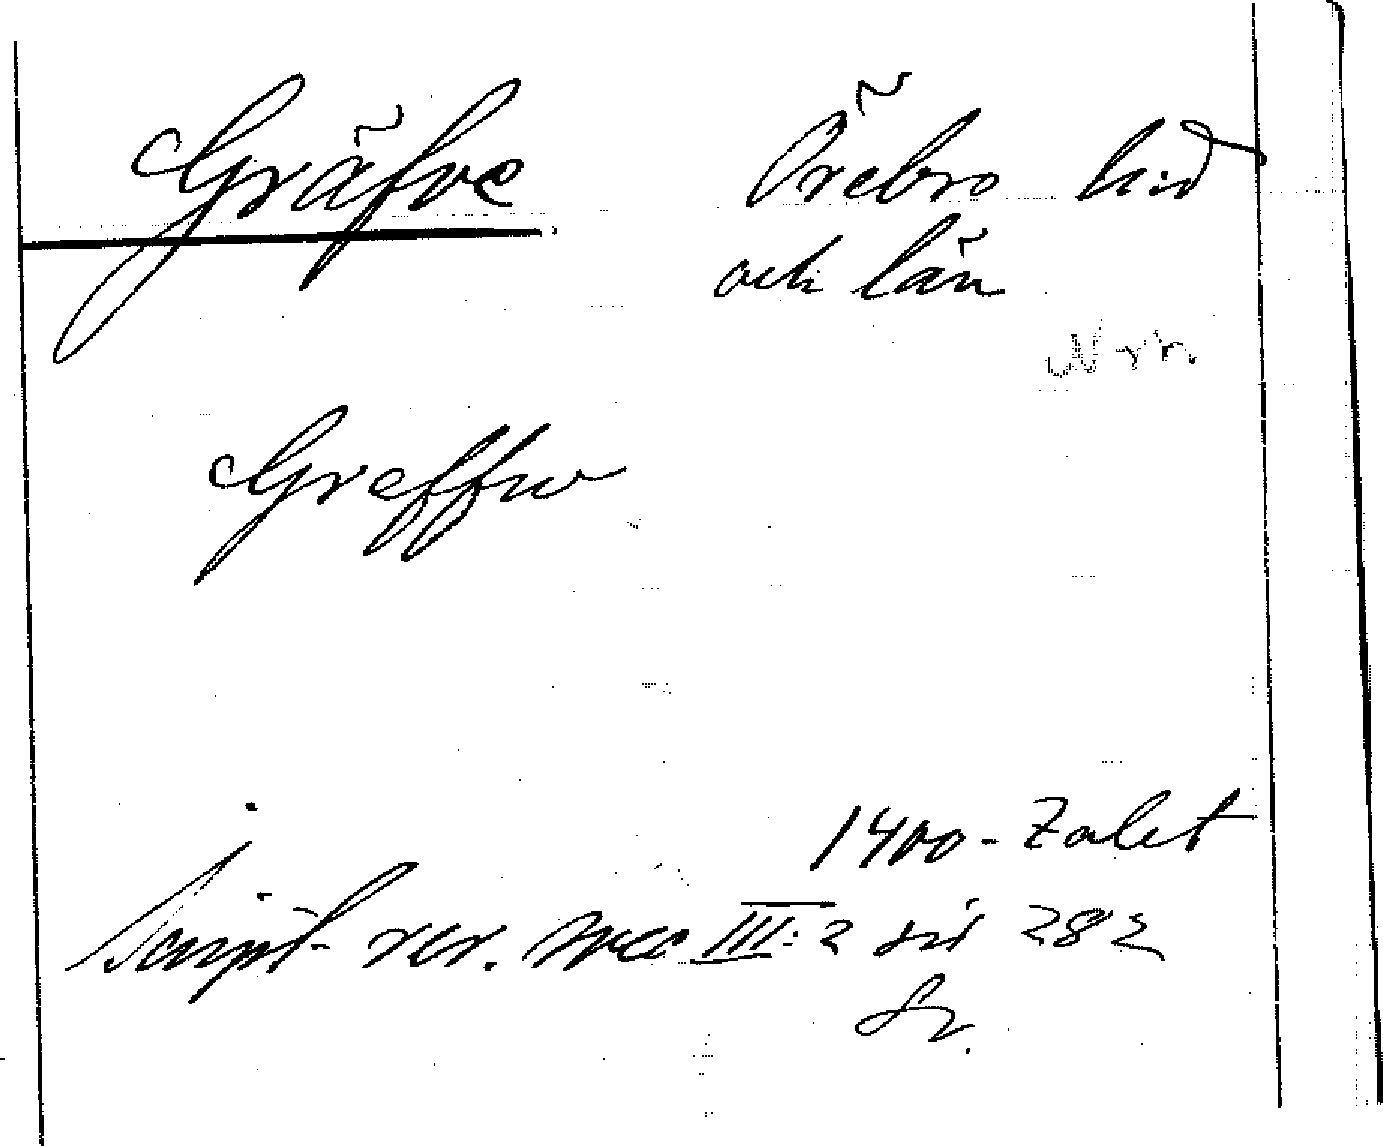 Gräfve Örebro hd
och län
Greffue
1400-talet
Script rer. svec III:2 sid 282
Sv.